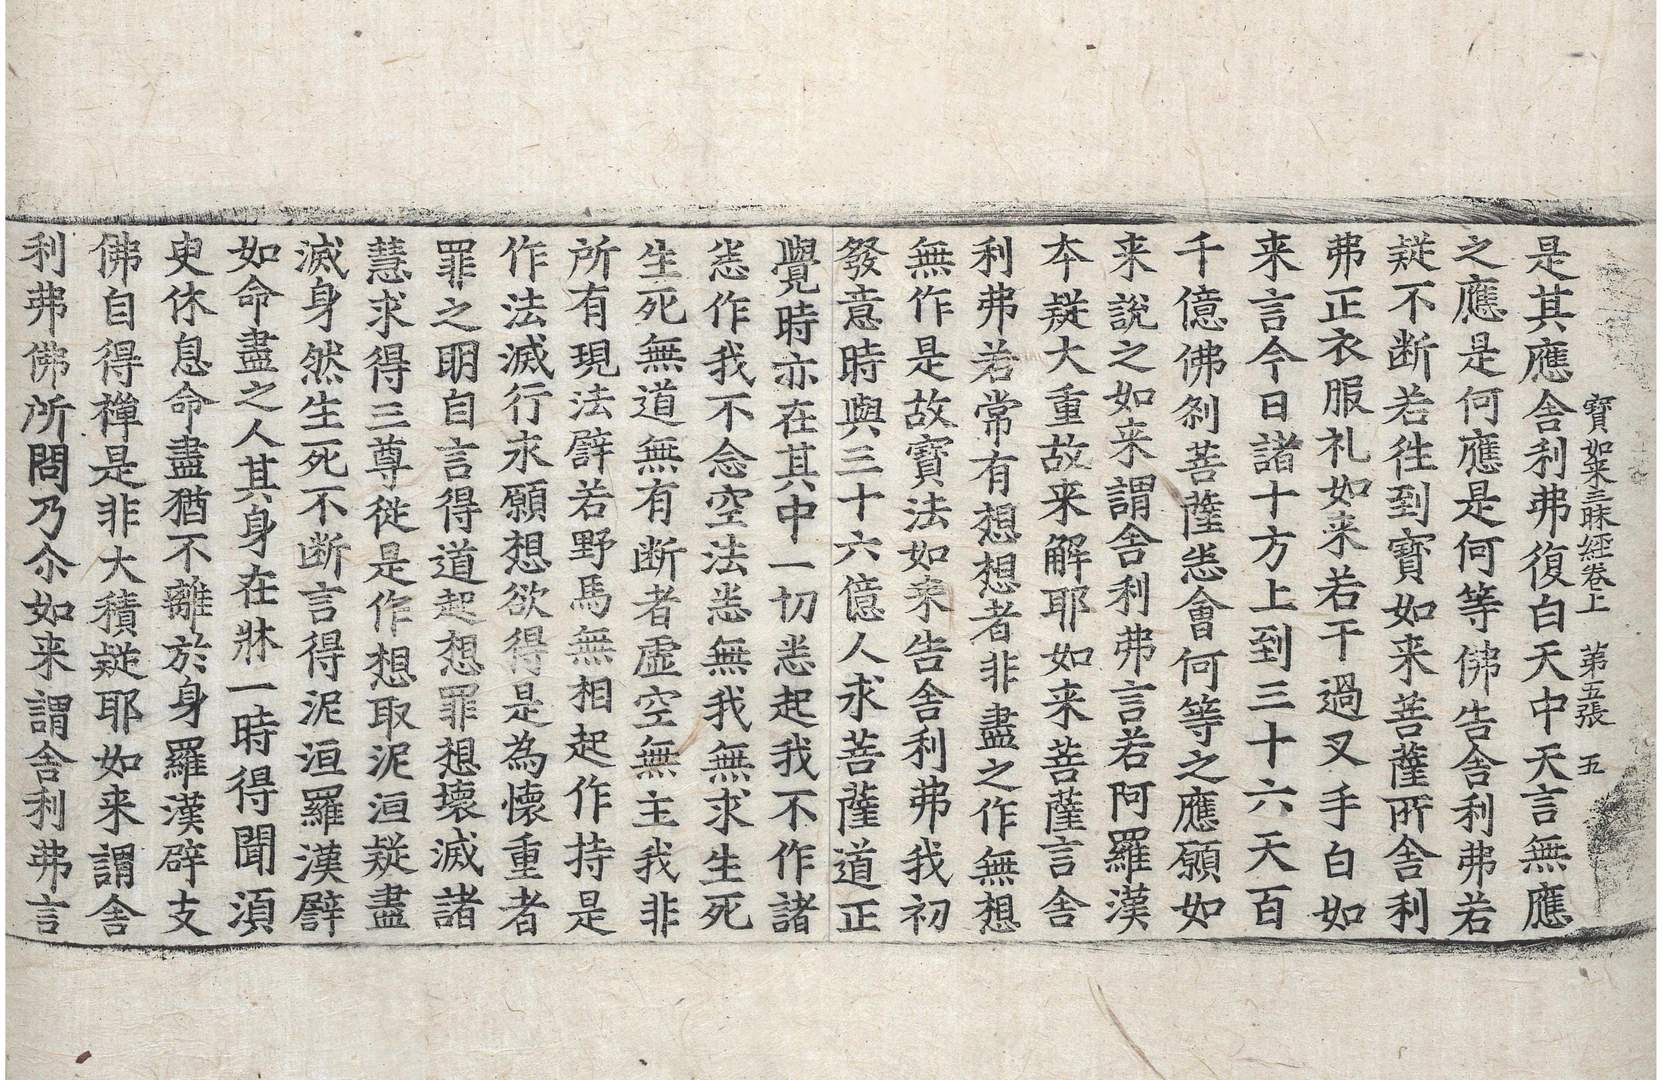 寶如来三昧經卷上　第五張　五
是其應舍利弗復白天中天言無應
之應是何應是何等佛告舍利弗若
疑不断若徃到寶如来菩薩所舍利
弗正衣服礼如来若干過叉手白如
来言今日諸十方上到三十六天百
千億佛刹菩薩悉會何等之應願如
来說之如来謂舍利弗言若阿羅漢
本疑大重故来解耶如来菩薩言舍
利弗若常有想想者非盡之作無想
無作是故寶法如来告舍利弗我初
發意時與三十六億人求菩薩道正
覺時亦在其中一切悉起我不作諸
悉作我不念空法悉無我無求生死
生死無道無有断者虛空無主我非
所有現法譬若野馬無相起作持是
作法滅行求願想欲得是為懷重者
罪之明自言得道起想罪想壞滅諸
慧求得三尊從是作想取泥洹疑盡
滅身然生死不断言得泥洹羅漢譬
如命盡之人其身在牀一時得聞須
臾休息命盡猶不離於身羅漢辟支
佛自得禪是非大積疑耶如来謂舍
利弗佛所問乃尒如来謂舍利弗言